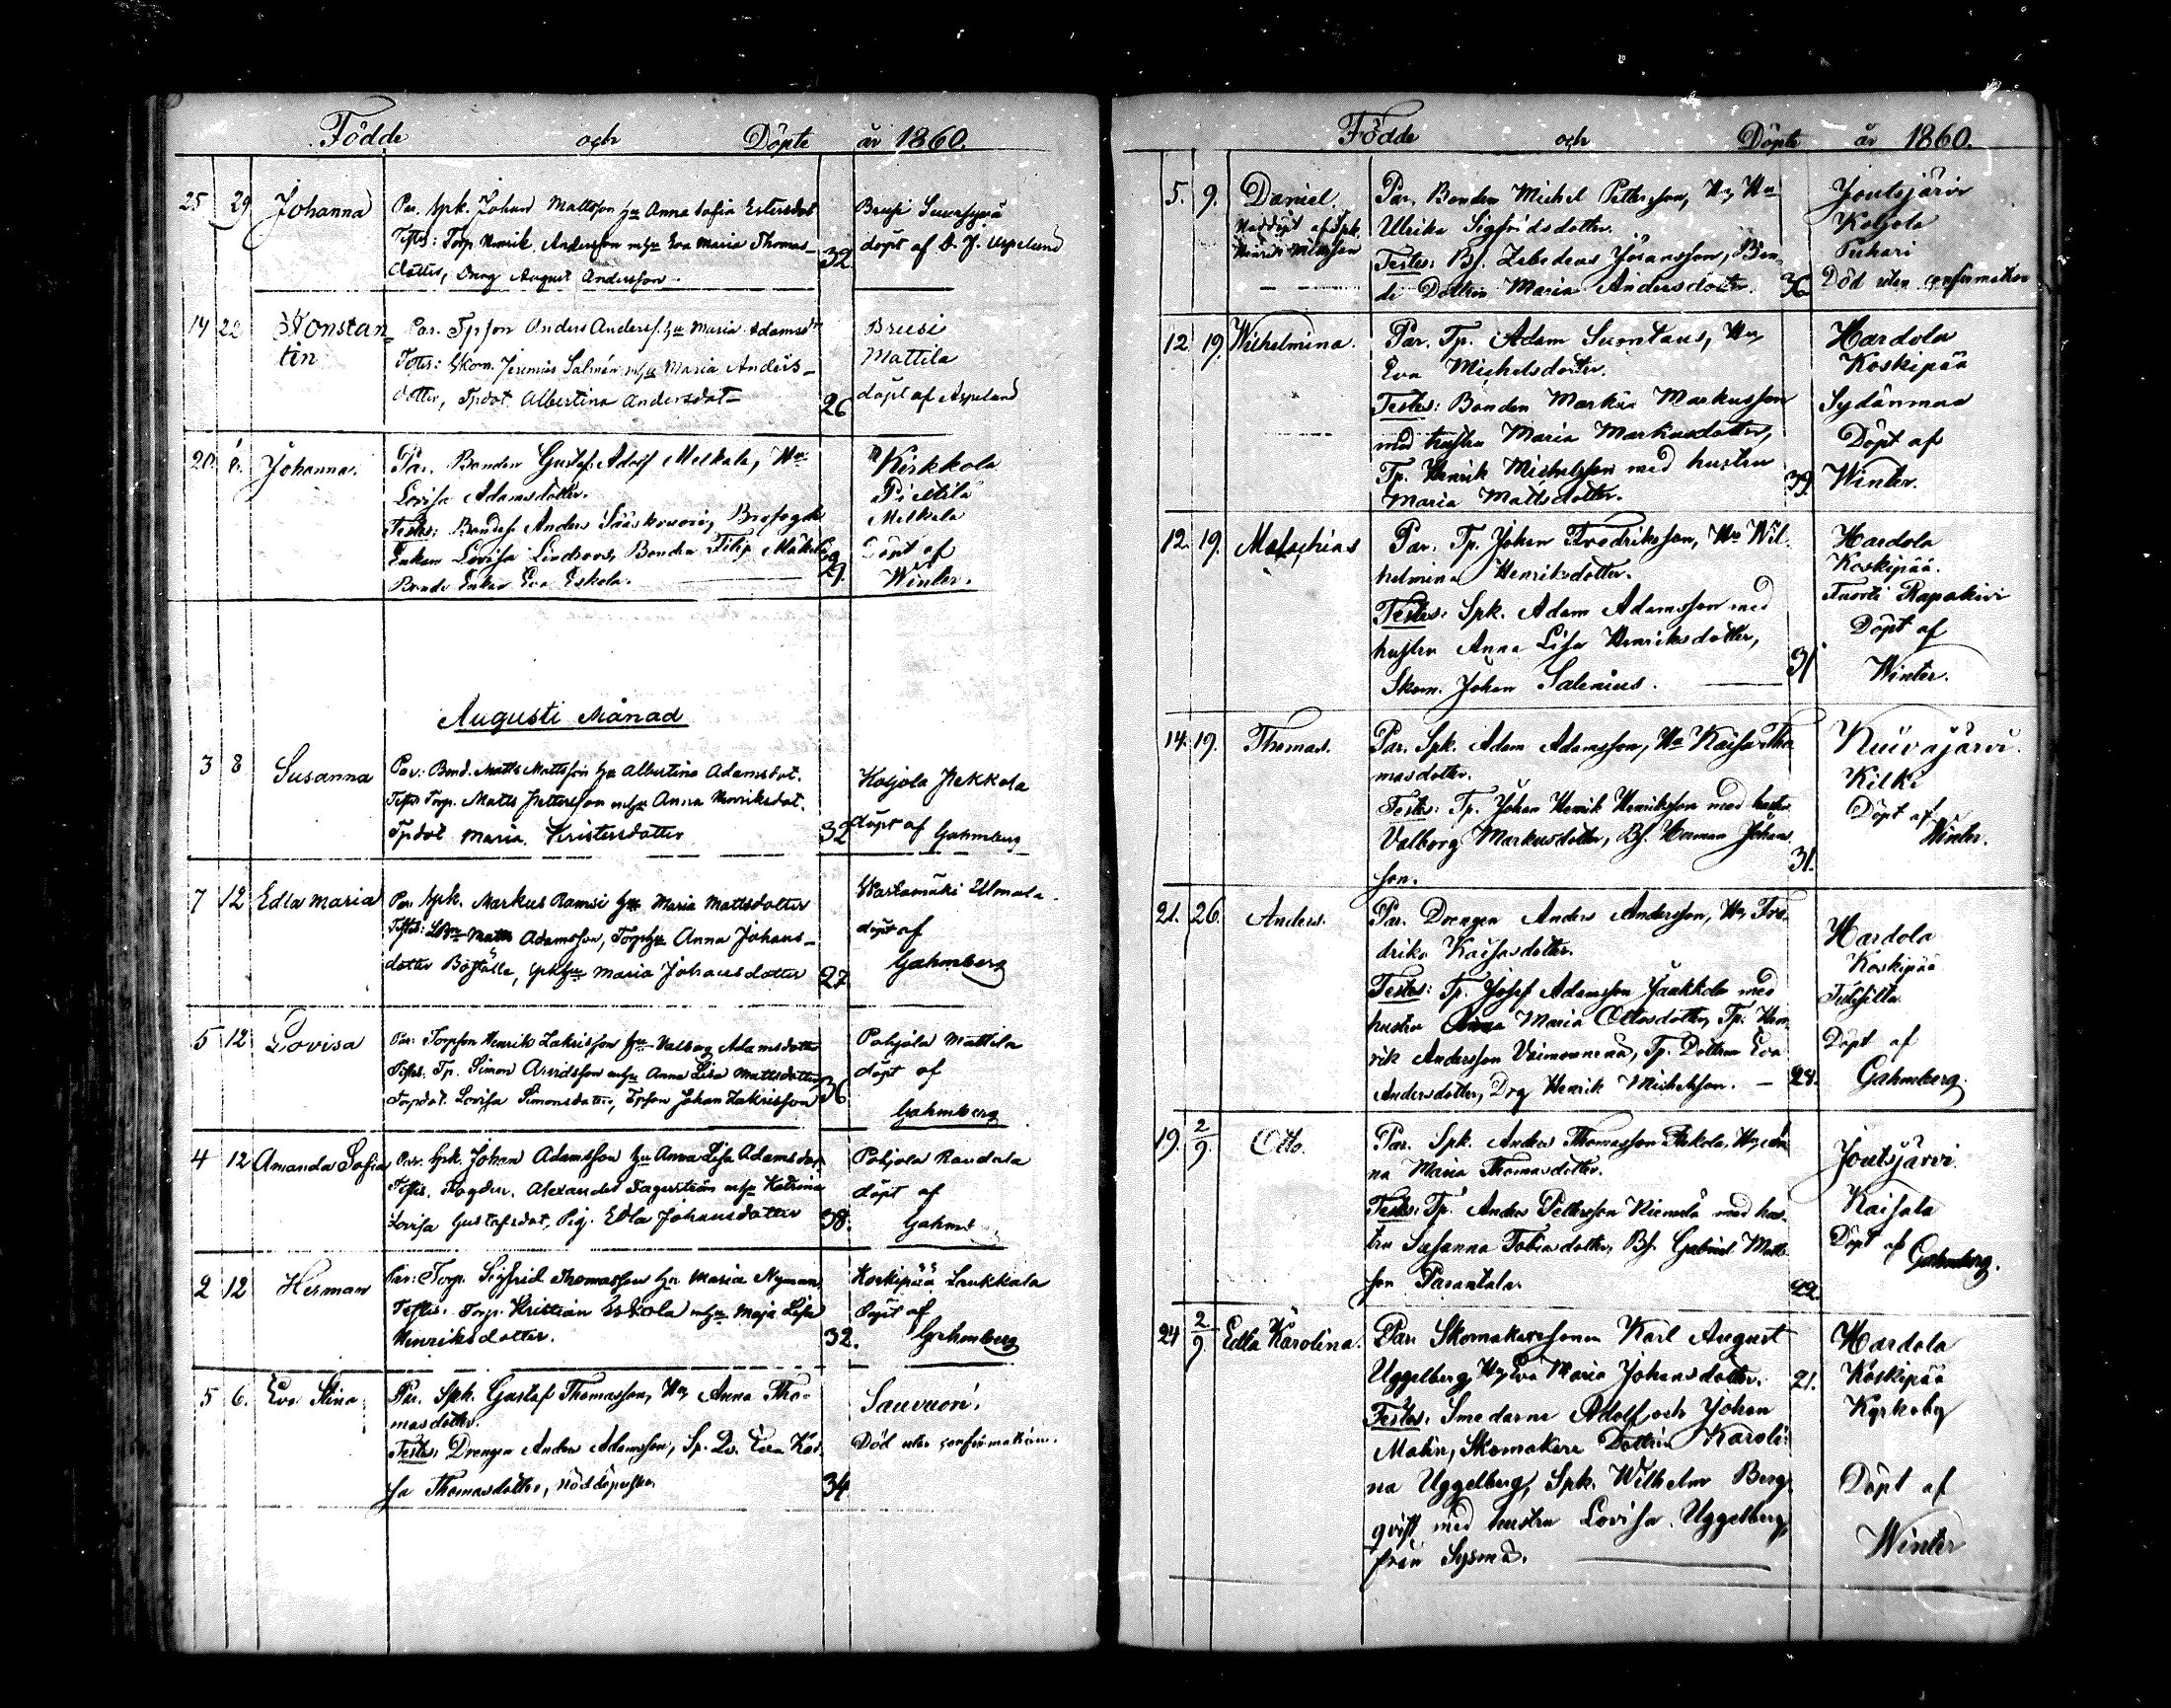 Födde och Döpte år 1860.
25 29 Johanna Par. Spk. Johan Mattsson hu Anna Sofia Estersdot
Testes: Torp. Henrik Andersson mhu Eva Maria Thomas-
dotter, Dräng August Andersson. 32
Brusi
döpt af
14 22 Konstan-
tin
Par. Tpson Anders Anderss. hu Maria Adamsdr
Testes: Skom. Jeremias Salmén mhu Maria Anders-
dotter, Tpdot. Albertina Andersdot- 26
Brusi
Mattila
döpt af Aspelund
20. Johanna. Par. Bonden Gustaf Adolf Melkala, Hu
Lovisa Adamsdotter.
Testes: Bondes. Anders Sääskivuori, Brofogde
Enkan Lovisa Lindroos, Bonden Filip Mäkelä
Bonde Enkan Eva Eskola. 29.
Kirkkola
Pietilä
Melkala
Döpt af
Winter.
Augusti Månad
3 8 Susanna Par: Bond. Matts Mattsson hu Albertina Adamsdot.
Testes Torp. Matts Pettersson mhu Anna Henriksdot.
Tpdot. Maria Kristersdotter 32
Koljola Pekkola
döpt af Gahmberg
7 12 Edla Maria Par. Spk. Markus Ramsi hu Maria Mattsdotter
Testes: Matts Adamsson, Torphu Anna Johans-
dotter Boställe, Spkhu Maria Johansdotter 27
Wartamäki Ulmala.
döpt af
Gahmberg
5 12 Lovisa Par: Torpson Henrik Zakrisson hu Valborg Adamsdotter
Testes. Tp. Simon Arvidsson mhu Anna Lisa Mattsdotter
Torpdot. Lovisa Simonsdotter, Tpson Johan Zakrisson 36
Pohjola Mattila
döpt af
Gahmberg
4 12 Amanda Sofia Par. Spk. Johan Adamsson hu Anna Lisa Adamsdot.
Testes. Alexander Fagerström mhu Katrina
Lovisa Gustafsdot, Pig. Edla Johansdotter 38.
Pohjola Randala
döpt af
Gahmb
2 12 Herman Par: Torp. Sigfrid Thomasson hu Maria Nyman
Testes. Torp. Kristian Eskola mhu Maja Lisa
Henriksdotter. 32.
Koskipää Laukkala
döpt af
Gahmberg
5 6. Eva Stina Par. Spk. Gustaf Thomasson, Hu Anna Tho-
masdotter.
Testes: Drengen Anders Adamsson, Sp. Eva Kai-
sa Thomasdotter, nöddöperska. 34
Sauvuori.
Död utan confirmation.
Födde och Döpte år 1860.
5. 9. Daniel. Par. Bonden Michel Pettersson, Hu
Nöddöpt af Spk. Ulrika Sigfridsdotter.
Henrik Testes: Bs. Zebedeus Johansson, Bon-
de Dottren Maria Andersdotter. 36
Joutsjärvi
Koljola
Puhari
Död utan confirmation
12 19. Wilhelmina. Par. Tp. Adam Suontaus, Hu
Eva Michelsdotter.
Testes: Bonden Markus Markusson
med hustru Maria Markusdotter,
Tp. Henrik Michelsson med hustru
Maria Mattsdotter. 39.
Hardola
Koskipää
Sydänmaa
Döpt af
Winter.
12. 19. Malachias Par. Tp. Johan Fredriksson, Hu Wil-
helmina Henriksdotter.
Testes: Spk. Adam Adamsson med
hustru Anna Lisa Henriksdotter,
Skom. Johan Salenius. 31
Hardola
Koskipää.
Rapakivi
Döpt af
Winter.
14. 19. Thomas. Par. Spk. Adam Adamsson, Hu Kaisa Tho-
masdotter.
Testes: Tp. Johan Henrik Henriksson med hustru
Valborg Markusdotter, Bs. Herman Johans-
son. 31.
Kuivajärvi.
Kilki
Döpt af
Winter.
21. 26. Anders. Par. Drengen Anders Andersson, Hu Fre-
drika Kaisasdotter.
Testes: Tp. Josef Adamsson Jaakkola med
hustru Maria Ottosdotter, Tp. Hen-
rik Andersson, Tp. Dottren Eva
Andersdotter, Drg Henrik Michelsson. 28.
Hardola
Koskipää
Döpt af
Gahmberg.
19. 2/9. Otto. Par. Spk. Anders Thomasson, Hu An-
na Maria Thomasdotter.
Testes: Tp. Anders Pettersson Niemelä med hus-
tru Susanna Tobiasdotter, Bs. Gabriel Matts-
son Parantala. 22.
Joutsjärvi.
Kaisala
Döpt af Gahmberg.
24 2/9. Edla Karolina. Par. Skomakaresonen Karl August
Uggelberg, Hu Eva Maria Johansdotter. 21.
Testes: Smedarne Adolf och Johan
Malin, Skomakare Dottren Karoli-
na Uggelberg, Spk. Wilhelm Berg-
qvist med hustru Lovisa Uggelberg,
från Sysmä.
Hardola
Koskipää
Kyrkoby
Döpt af
Winter